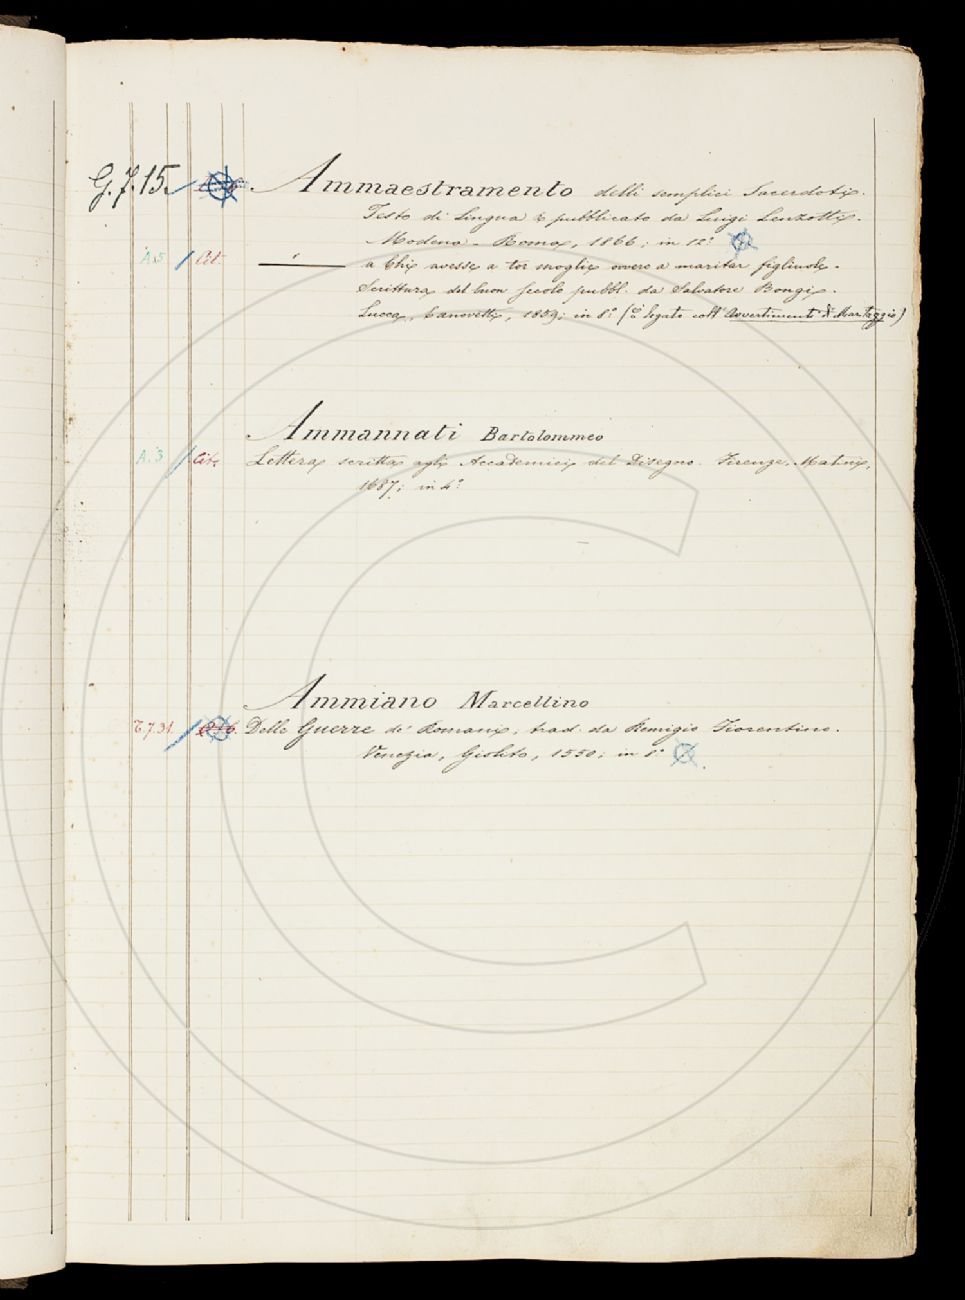 G. 7. 15. Ammaestramento delli semplici Sacerdoti.
Testo di Lingua pubblicato da Luigi Lenzotti.
Modena - Roma, 1866; in 12.°
A.5 Cit. — a chi avesse a tor moglie ovvero a maritar figliuole.
Scrittura del buon secolo pubbl. da Salvatore Bongi.
Lucca, Canovetti, 1859; in 8.° (è legato coll' Avvertimenti di Maritaggio)
Ammannati Bartolommeo
A.3 Cit. Lettera scritta agli Accademici del Disegno. Firenze, Matini,
1687; in 4.°
Ammiano Marcellino
T.7.31. Delle Guerre de' Romani, trad. da Remigio Fiorentino.
Venezia, Giolito, 1550; in 8.°